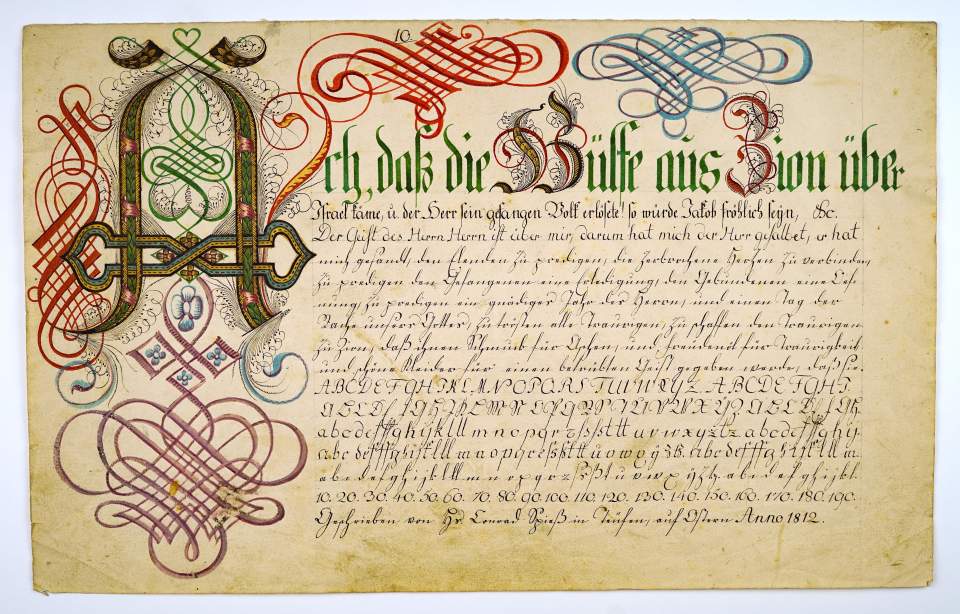 10.
Ach, daß die Hülffe aus Zion über
Israel käme, u. der Herr sein gefangen Volk erlösete! so würde Jakob fröhlich seyn, &c.
Der Geist des Herrn Herrn ist über mir, darum hat mich der Herr gesalbet, er hat
mich gesandt, den Elenden zu predigen, die zerbrochene Herzen zu verbinden,
zu predigen den Gefangenen eine Erledigung, den Gebundenen eine Oef-
nung, zu predigen ein gnädiges Jahr des Herrn, und einen Tag der
Rache unsers Gottes, zu trösten alle Traurigen, zu schaffen den Traurigen
zu Zion, daß ihnen Schmuck für Aschen, und Freudenöl für Traurigkeit
und schöne Kleider für einen betrübten Geist gegeben werde, daß sie.
ABCDEFGHIKLMNOPQRSTUVWXYZ. ABCDEFGHI
abcdefghijklll m n o p q r
10. 20. 30. 40. 50. 60. 70. 80. 90. 100. 110. 120. 130. 140. 150. 160. 170. 180. 190.
Geschrieben von Hs. Conrad Spieß in Teufen, auf Ostern Anno 1812.